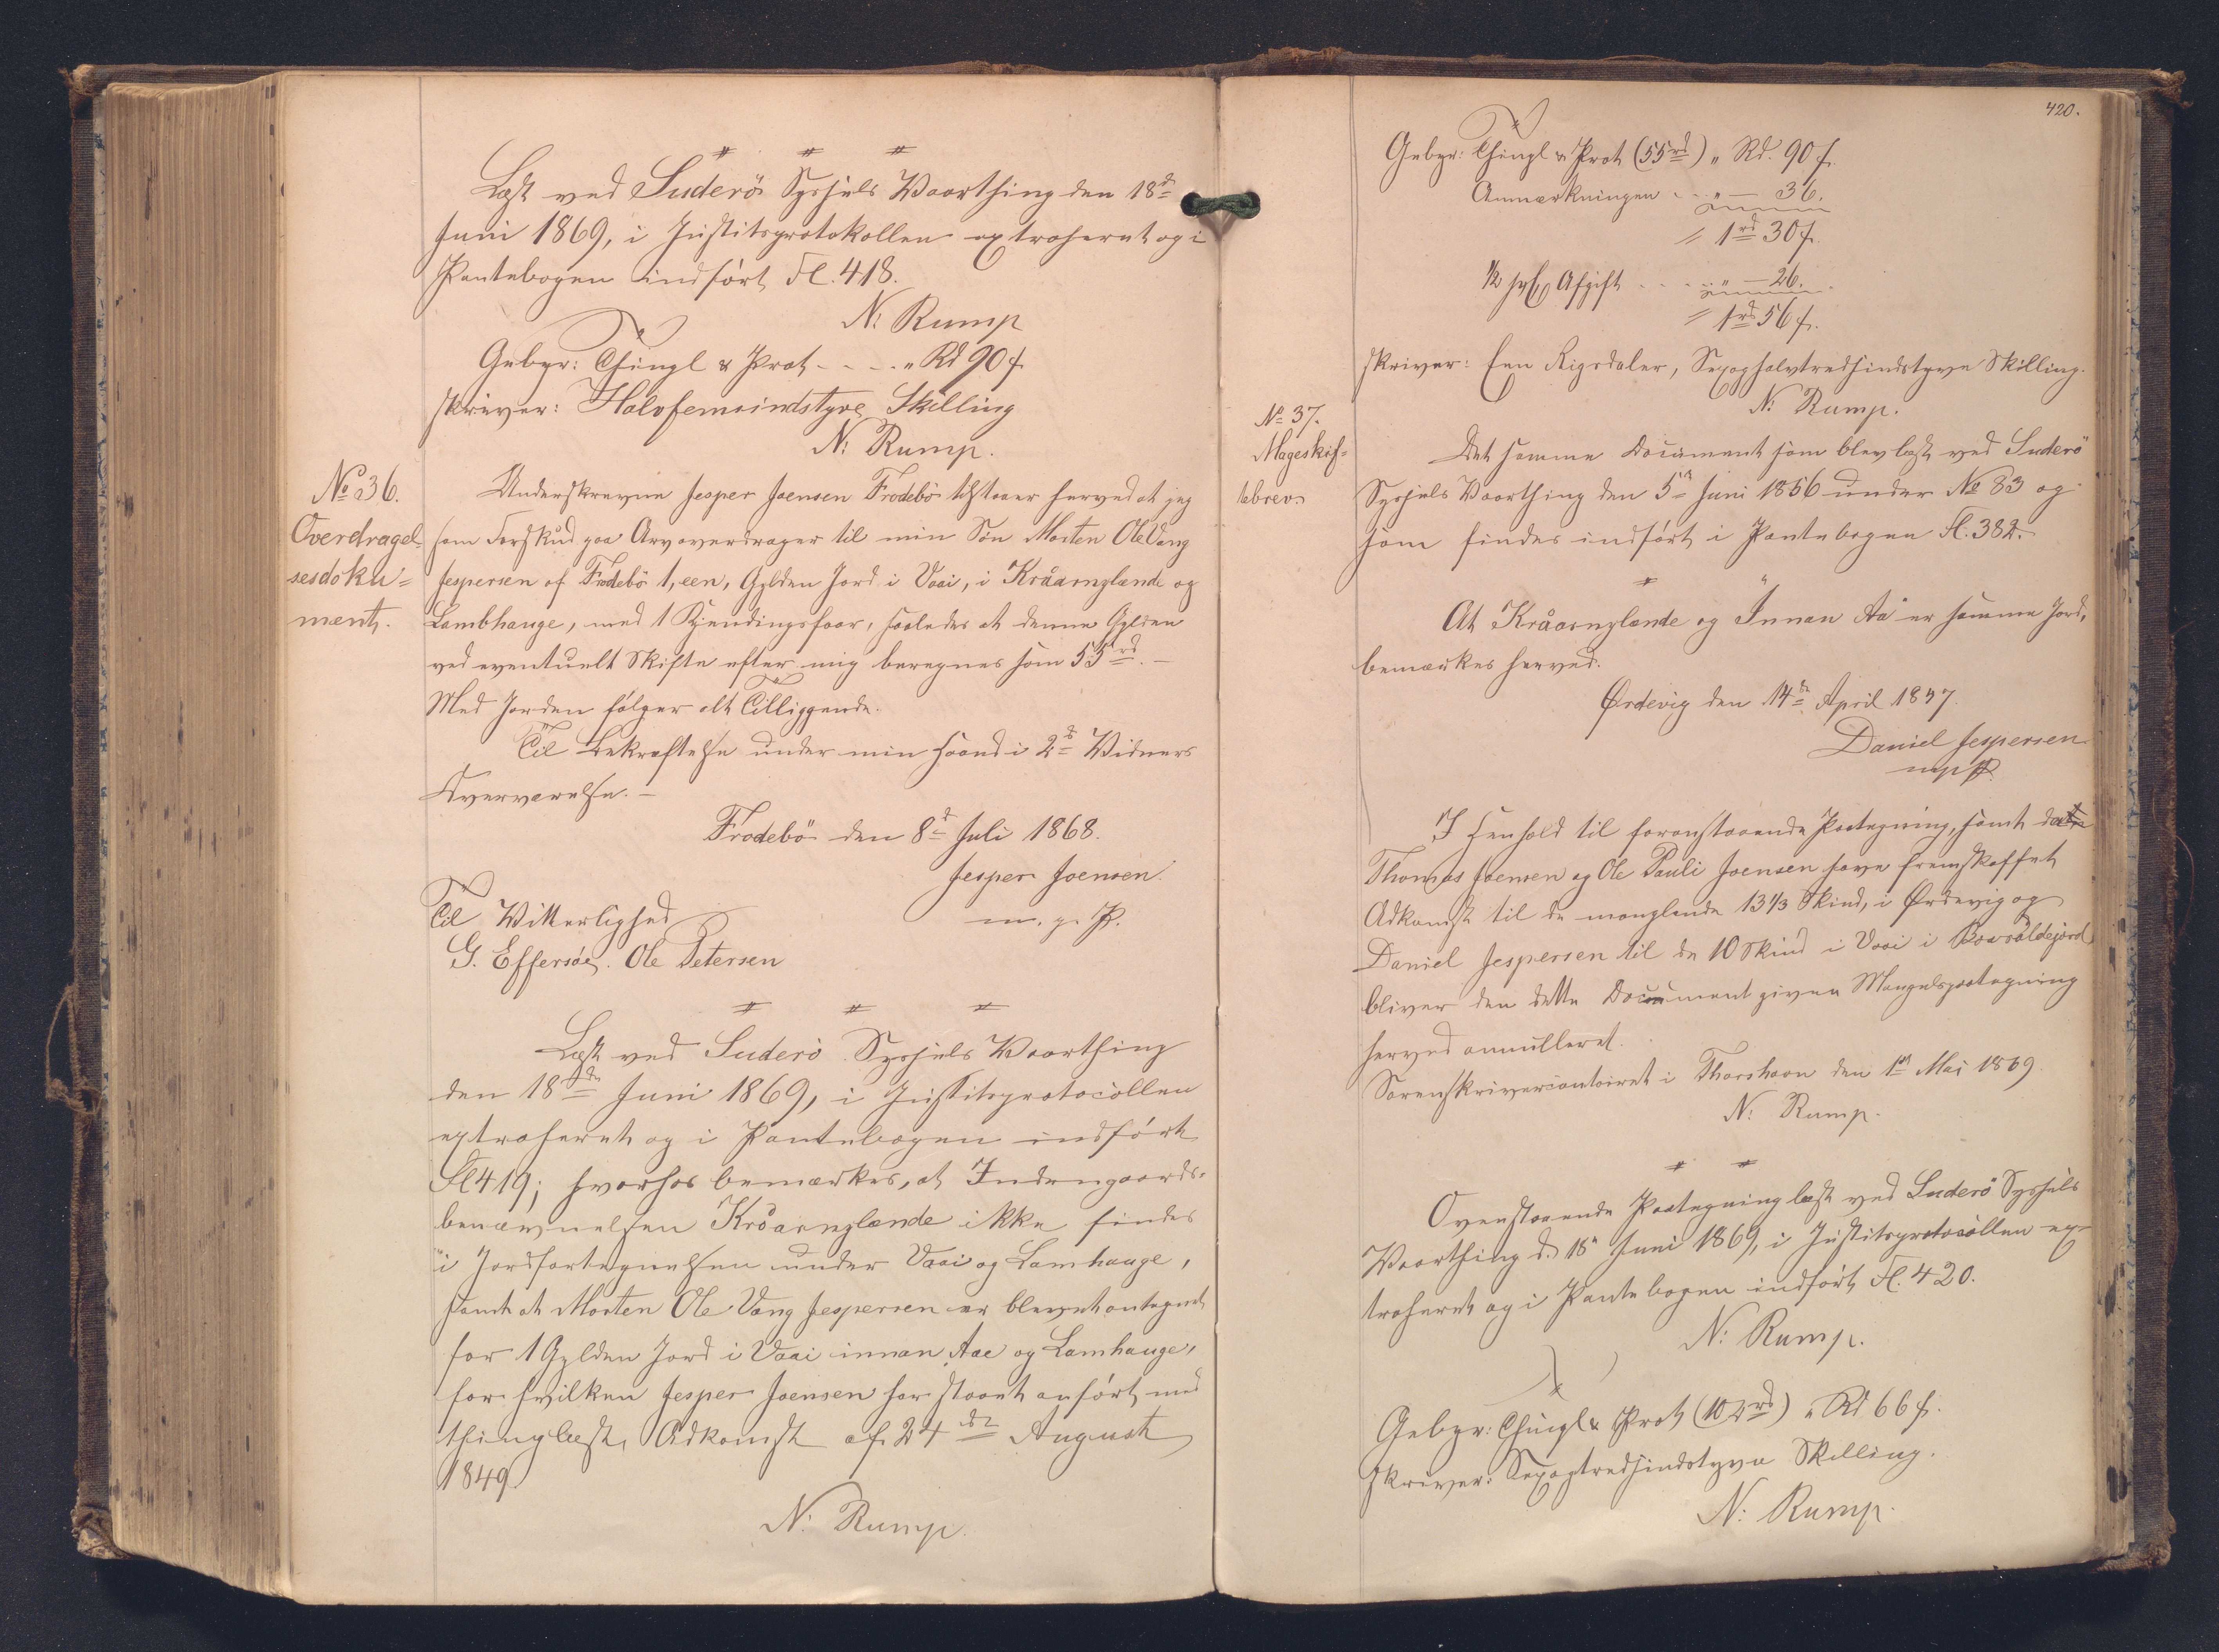 Læst ved Suderö Syssels Vaarthing den 18d
Juni 1869, i Justitsprotokollen extraheret og i
Pantebogen indført Fl. 418.
N: Rump
Gebyr: Thingl & Prot - - - - " Rd 90 f
skriver: Halvfemsindstyve Skilling
N: Rump.
No 36.
Overdragel-
sesdoku=
ment.
Underskrevne Jesper Joensen Frodebö tilstaaer herved at jeg
som Forskud paa Arv overdrager til min Sön Morten Ole Vang
Jespersen af Frodebö 1, een, Gylden Jord i Vaai, i Kråarnglænde og
Lambhauge, med 1 Kjendingsfaar, saaledes at denne Gylden
ved eventuelt Skifte efter mig beregnes som 55 rd. –
Med Jorden følger alt Tilliggende.
Til Bekræftelse under min Haand i 2de Vidners
Overværelse. –
Frodebö den 8d Juli 1868.
Jesper Joensen.
m. p. P.
Til Vitterlighed
G. Effersøe. Ole Petersen
Læst ved Suderö Syssels Vaarthing
den 18de Juni 1869, i Justitsprotocollen
extraheret og i Pantebogen indført
Fl 419; hvorhos bemærkes, at Indengaards-
benævnelsen Kråarnglænde ikke findes
i Jordfortegnelsen under Vaai og Lamhauge,
samt at Morten Ole Vang Jespersen er blevet antegnet
for 1 Gylden Jord i Vaai innan Aae og Lamhauge,
for hvilken Jesper Joensen har staaet anført med
thinglæst Adkomst af 24de August
1849
N: Rump.
420.
Gebyr: Thingl & Prot (55rd) " Rd. 90 f.
Anmærkningen - - " — 36.
= 1rd 30 f.
1/2 pC Afgift - - - - " — 26.
= 1rd 56 f.
skriver: Een Rigsdaler, Sexoghalvtredsindstyve Skilling.
N: Rump.
No 37.
Mageskif-
tebrev.
Det samme Document som blev læst ved Suderö
Syssels Vaarthing den 5te Juni 1856 under No 83 og
som findes indført i Pantebogen Fl. 382.
At Kråarnglænde og Innan Aa er samme Jord,
bemærkes herved.
Ørdevig den 14de April 1857.
Daniel Jespersen
mpP.
I Henhold til foranstaaende Paategning, samt da
Thomas Joensen og Ole Pauli Joensen have fremskaffet
Adkomst til de manglende 13 1/3 Skind, i Ørdevig og
Daniel Jespersen til de 10 Skind i Vaai i
bliver den dette Document givne Mangelspaategning
herved annulleret.
Sorenskrivercontoiret i Thorshavn den 1st Mai 1869.
N: Rump.
Ovenstaaende Paategning læst ved Suderö Syssels
Vaarthing d. 18de Juni 1869, i Justitsprotocollen ex-
traheret og i Pantebogen indført Fl. 420.
N: Rump.
Gebyr: Thingl & Prot (102rd) " Rd 66 f.
skriver: Sexogtredsindstyve Skilling.
N: Rump.